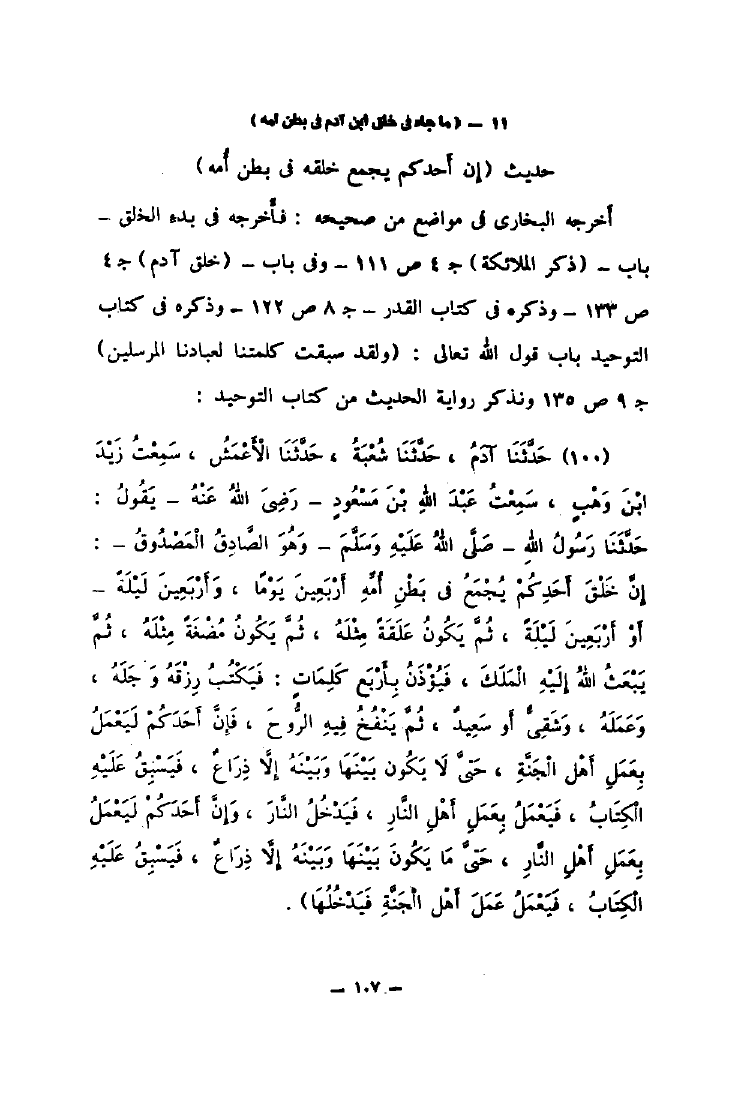 ١١ – (ما جاء فى خلق ابن آدم فى بطن أمه)
حديث (إن أحدكم يجمع خلقه فى بطن أُمه)
أخرجه البخارى فى مواضع من صحيحه : فأخرجه فى بدء الخلق –
باب – (ذكر الملائكة) جـ ٤ ص ١١١ – وفى باب – (خلق آدم) جـ ٤
ص ١٣٣ – وذكره فى كتاب القدر – جـ ٨ ص ١٢٢ – وذكره فى كتاب
التوحيد باب قول الله تعالى : (ولقد سبقت كلمتنا لعبادنا المرسلين)
جـ ٩ ص ١٣٥ ونذكر رواية الحديث من كتاب التوحيد :
(١٠٠) حَدَّثَنَا آدَمُ ، حَدَّثَنَا شُعْبَةُ ، حَدَّثَنَا الْأَعْمَشُ ، سَمِعْتُ زَيْدَ
ابْنَ وَهْبٍ ، سَمِعْتُ عَبْدَ اللهِ بْنَ مَسْعُودٍ – رَضِىَ اللهُ عَنْهُ – يَقُولُ :
حَدَّثَنَا رَسُولُ اللهِ – صَلَّى اللهُ عَلَيْهِ وَسَلَّمَ – وَهُوَ الصَّادِقُ الْمَصْدُوقُ – :
إِنَّ خَلْقَ أَحَدِكُمْ يُجْمَعُ فى بَطْنِ أُمِّهِ أَرْبَعِينَ يَوْمًا ، وَأَرْبَعِينَ لَيْلَةً –
أَوْ أَرْبَعِينَ لَيْلَةً ، ثُمَّ يَكُونُ عَلَقَةً مِثْلَهُ ، ثُمَّ يَكُونُ مُضْغَةً مِثْلَهُ ، ثُمَّ
يَبْعَثُ اللهُ إِلَيْهِ الْمَلَكَ ، فَيُؤْذَنُ بِأَرْبَعِ كَلِمَاتٍ : فَيَكْتُبُ رِزْقَهُ وَ جَلَهُ ،
وَعَمَلَهُ ، وَشَقِىٌّ أَو سَعِيدٌ ، ثُمَّ يَنْفُخُ فِيهِ الرُّوحَ ، فَإِنَّ أَحَدَكُمْ لَيَعْمَلُ
بِعَمَلِ أَهْلِ الْجَنَّةِ ، حَتَّى لَا يَكُون بَيْنَهَا وَبَيْنَهُ إِلَّا ذِرَاعٌ ، فَيَسْبِقُ عَلَيْهِ
الْكِتَابُ ، فَيَعْمَلُ بِعَمَلِ أَهْلِ النَّارِ ، فَيَدْخُلُ النَّارَ ، وَإِنَّ أَحَدَكُمْ لَيَعْمَلُ
بِعَمَلِ أَهْلِ النَّارِ ، حَتَّى مَا يَكُونَ بَيْنَهَا وَبَيْنَهُ إِلَّا ذِرَاعٌ ، فَيَسْبِقُ عَلَيْهِ
الْكِتَابُ ، فَيَعْمَلُ عَمَلَ أَهْلِ الْجَنَّةِ فَيَدْخُلُهَا) .
– ١٠٧ –